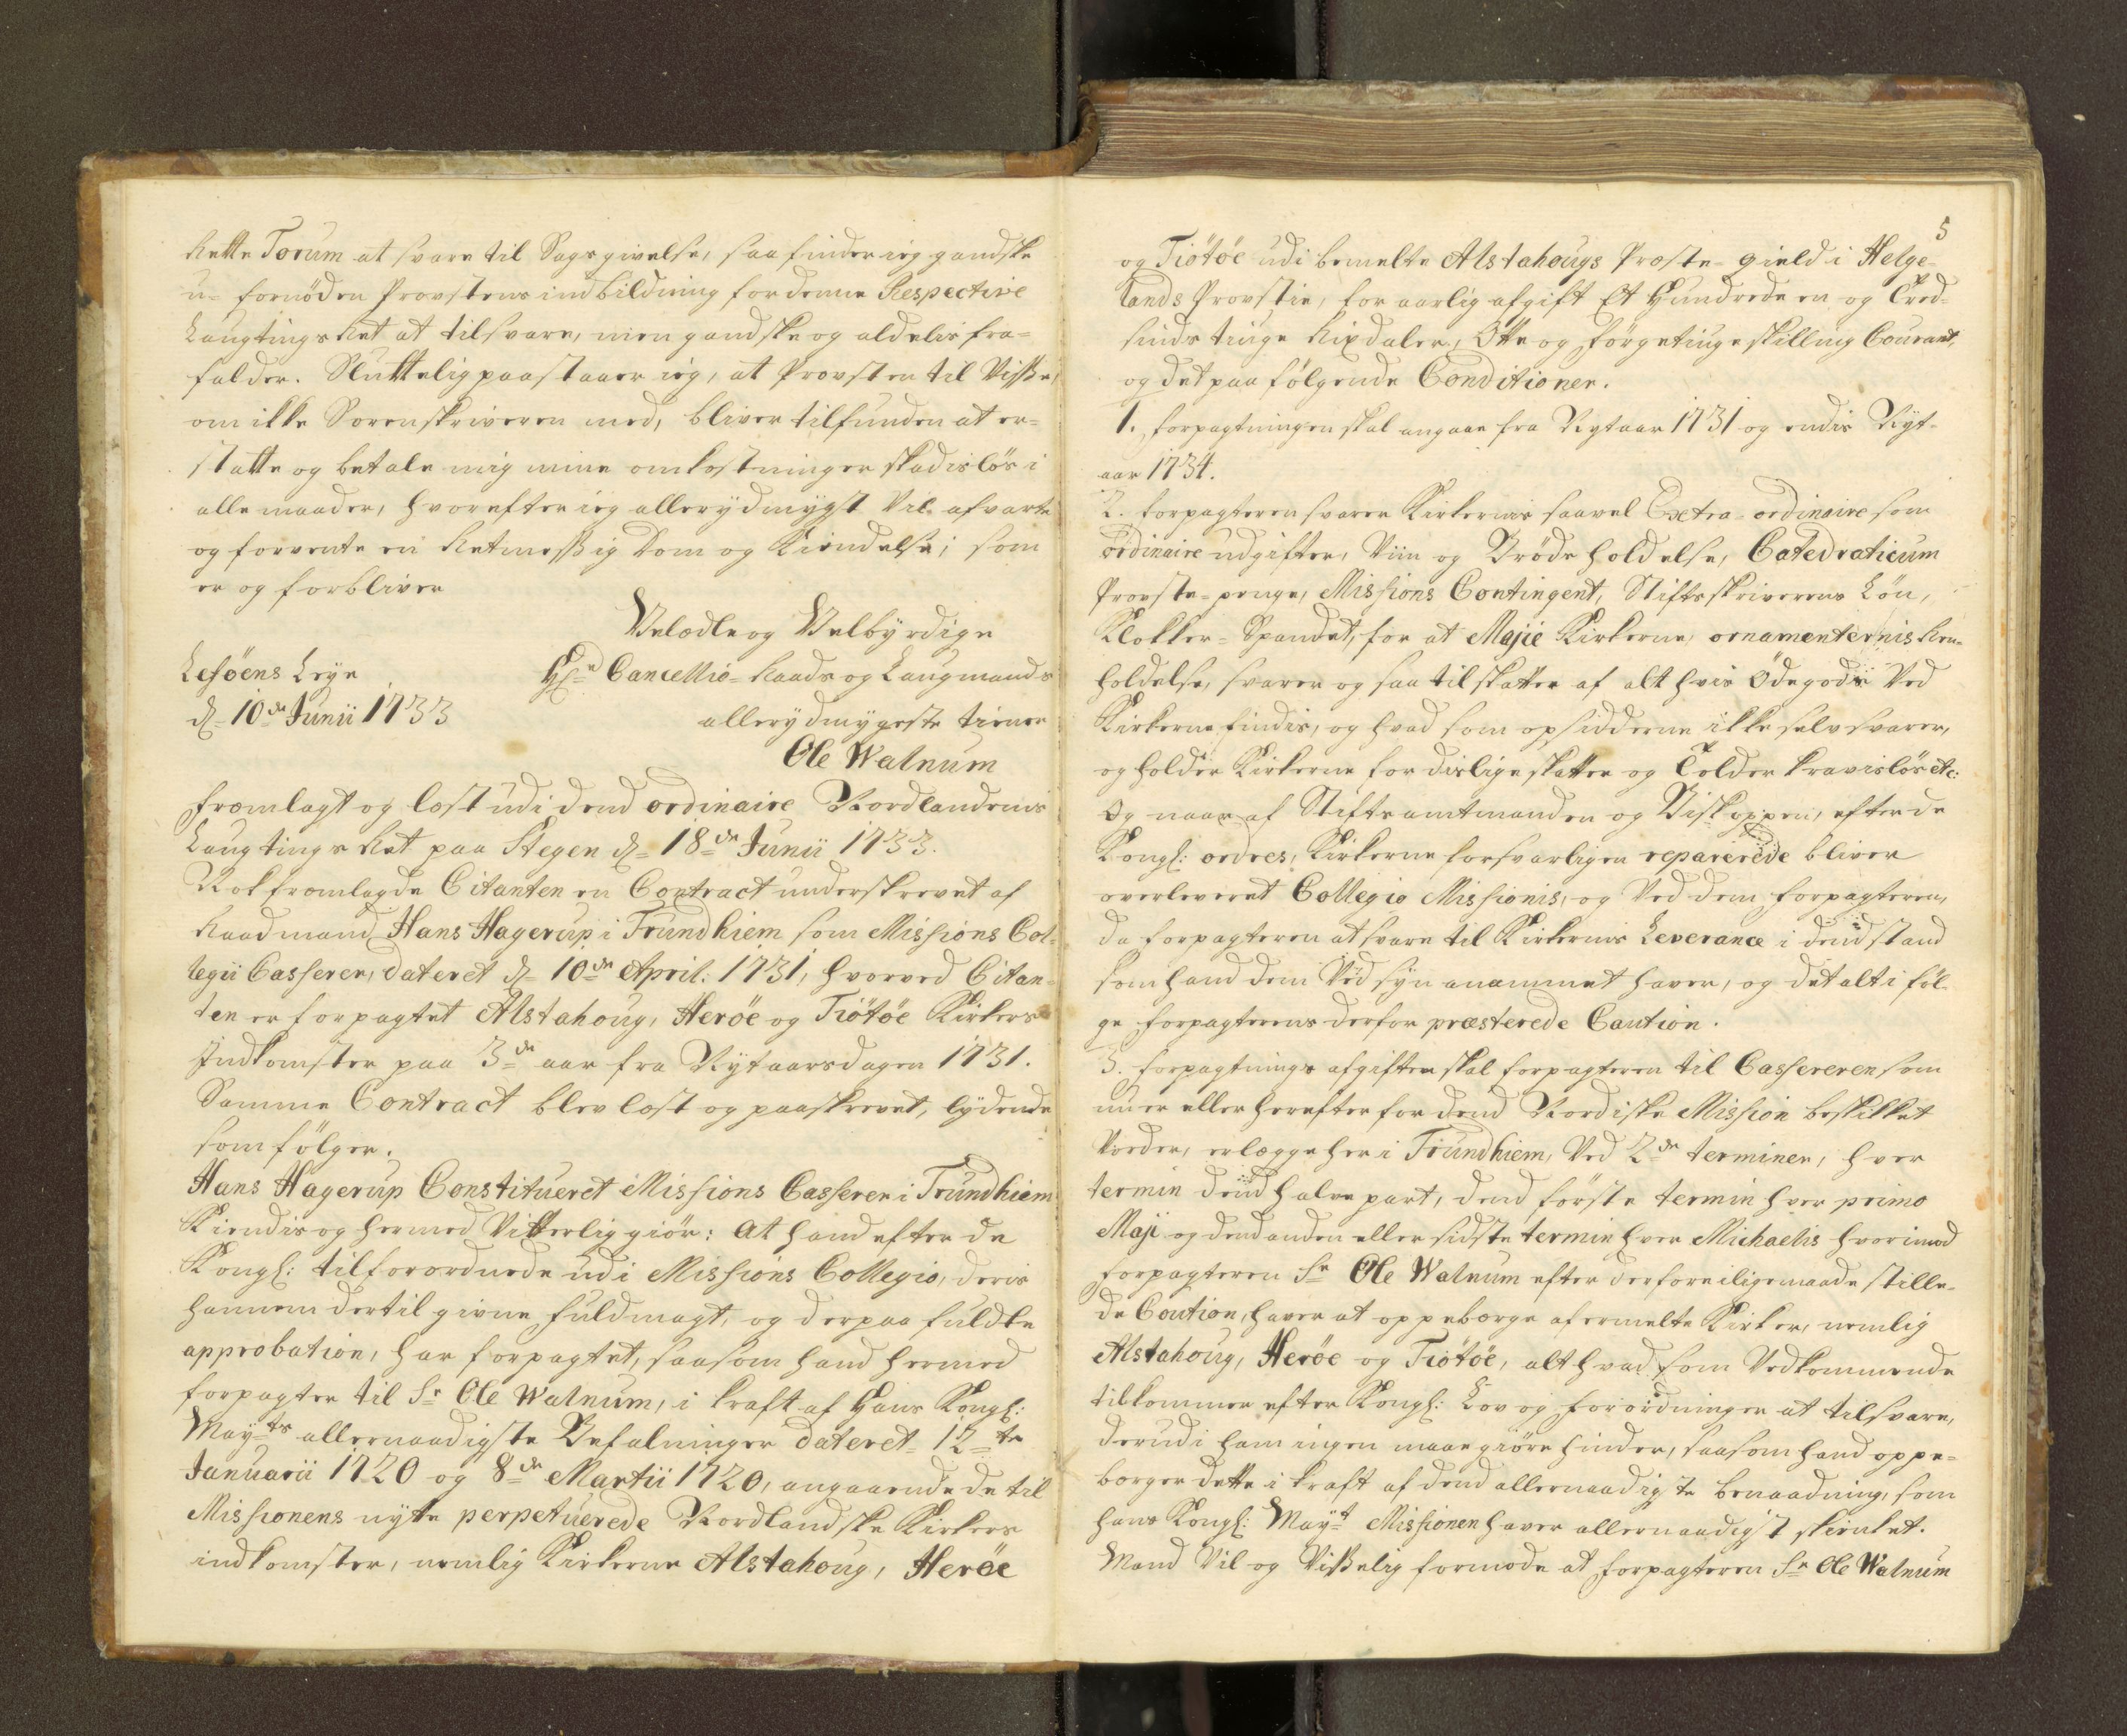 Rette Forum at svare til Sags givelse, saa finder ieg gandske
u-fornöden Provstens indbildning for denne Respective
Laugtings Ret at tilsvare, men gandske og aldelis fra-
falder. Sluttelig paastaaer ieg, at Provsten til Visse,
om ikke Sorenskriveren med, bliver tilfunden at er-
statte og betale mig mine omkostninger skadislös i
alle maader, hvorefter ieg allerydmygst Vil afvarte
og forvente en Retmessig Dom og Kiendelse; som
er og forbliver
Velædle og Velbyrdige
Lesöens Leye Hr Cancellie-Raads og Laugmands
d. 10de Junii 1733 allerydmygeste tiener
Ole Walnum
fremlagt og læst udi dend ordinaire Nordlandenis
Laugtings Ret paa Stegen d. 18de Junii 1733.
Nok fremlagde Citanten en Contract underskrevet af
Raadmand Hans Hagerup i Trundhiem som Missions Col-
legii Casserer, dateret d. 10de April: 1731, hvorved Citan-
ten er forpagtet Alstahoug, Heröe og Tiötöe Kirkers
Indkomster paa 3de aar fra Nytaarsdagen 1731.
Samme Contract blev læst og paaskrevet, lydende
som fölger.
Hans Hagerup Constitueret Missions Casserer i Trundhiem
Kiendis og hermed Vitterlig giör: at hand efter de
Kongl: tilforordnede udi Missions Collegio, deris
hannem dertil givne fuldmagt, og derpaa fuldte
approbation, har forpagtet, saasom hand hermed
forpagter til Sr Ole Walnum, i kraft af Hans Kongl:
Mayts allernaadigste Befalninger dateret 12te
Januarii 1720 og 8de Martii 1720, angaaende de til
Missionens nytte perpetuerede Nordlandske Kirkers
indkomster, nemlig Kirkerne Alstahoug, Heröe
5
og Tiötöe udi bemelte Alstahougs Præste-gield i Helge-
lands Provstie, for aarlig afgift Et Hundrede en og Tred-
sinds tiuge Rixdaler, Otte og förgetiuge skilling Courant,
og det paa fölgende Conditioner.
1. forpagtningen skal angaae fra Nytaar 1731 og endis Nyt-
aar 1734.
2. forpagteren svarer Kirkernis saavel Extra-ordinaire som
ordinaire udgifter, Viin og Bröds holdelse, Catedraticum
Provste-penge, Missions Contingent, Stiftsskriverens Lön,
Klokker-Spandet, for at Majie Kirkerne, ornamenternis Ren-
holdelse, svarer og saa til skatter af alt hvis Ödegods Ved
Kirkerne findis, og hvad som opsidderne ikke selv svarer,
og holder Kirkerne for dislige skatter og Tolder kravislös etc:
Og naar af Stiftamtmanden og Biskoppen, efter de
Kongl: ordres, Kirkerne forsvarligen reparerede bliver
overleveret Collegio Missionis, og Ved dem forpagteren,
da forpagteren at svare til Kirkernis Leverance i dend stand
som hand dem Ved syn anammet haver, og det alt i föl-
ge forpagterens derfor præsterede Caution.
3. forpagtnings afgiften skal forpagteren til Cassereren som
nu er eller herefter for dend Nordiske Mission beskikket
Vorder, erlægge her i Trundhiem, Ved 2de terminer, hver
termin dend halve part, dend förste termin hver primo
Maji og dend anden eller sidste termin hver Michaelis hvorimod
forpagteren Sr Ole Walnum efter derfore iligemaade stille-
de Caution, haver at oppebærge af ermelte Kirker, nemlig
Alstahoug, Heröe og Tiötöe, alt hvad som Vedkommende
tilkommer efter Kongl: Lov og forordninger at tilsvare,
derudi ham ingen maae giöre hinder, saasom hand oppe-
bærger dette i kraft af dend allernaadigste benaadning, som
hans Kongl: Mayt Missionen haver allernaadigst skienket.
Mand Vil og Visselig formode at forpagteren Sr Ole Walnum